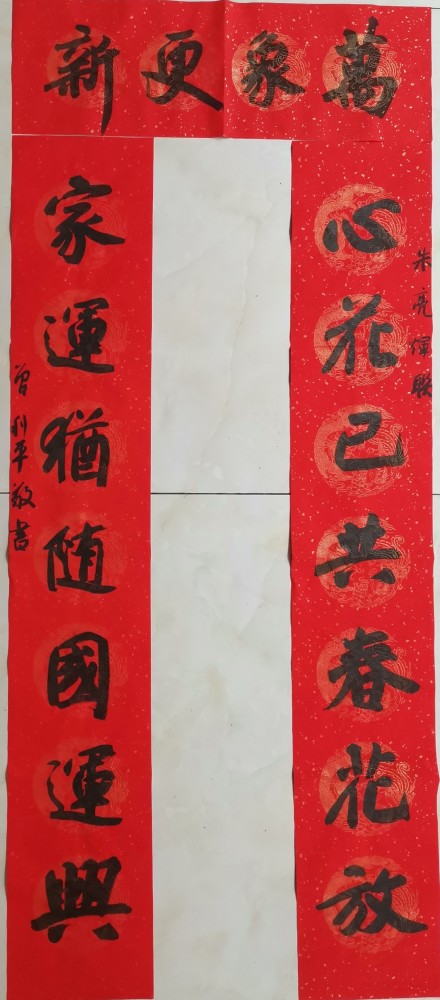 萬象更新
心花已共春花放
朱亮輝联
家運猶随國運興
曾利平敬書